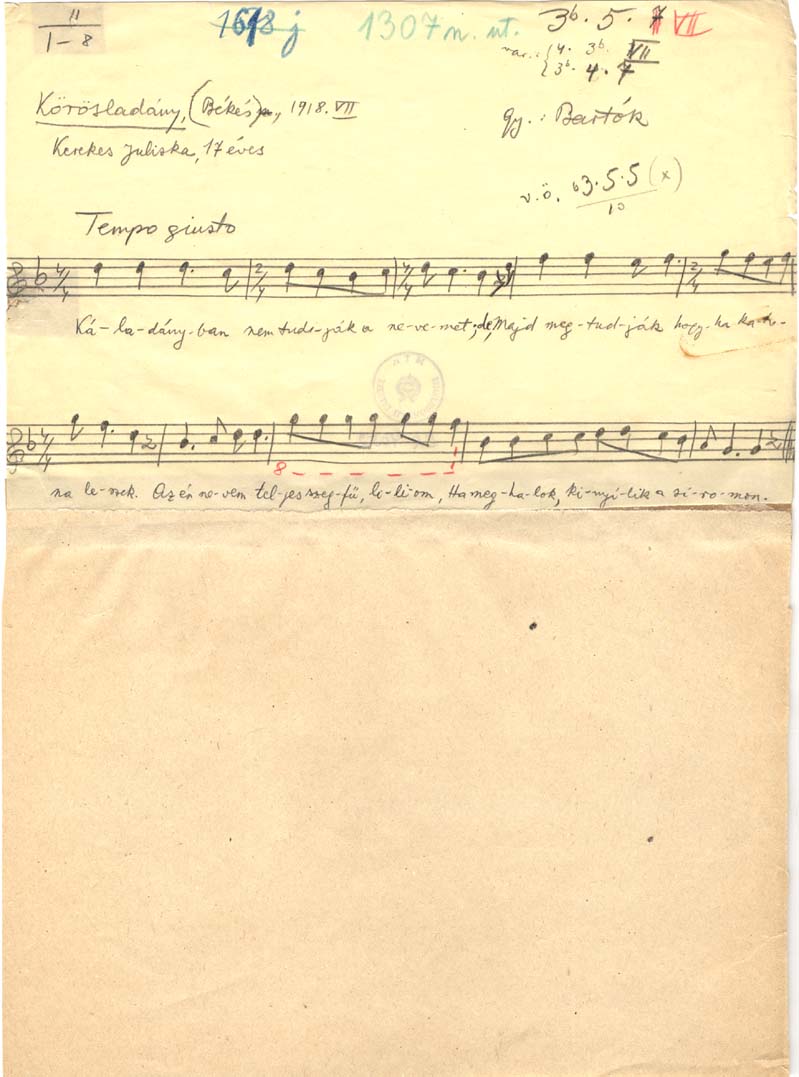 II
I–8
1307 n. ut.
3b. 5. VII
var.: { 4. 3b. VII
{ 3b. 4. 7
Körösladány, (Békés), 1918. VII
gy.: Bartók
Kerekes Juliska, 17 éves
v.ö. b3.5.5 (x)
10
Tempo giusto
4/4 2/4 4/4 2/4
Ká-la-dány-ban nem tud-ják a ne-ve-met, de, Majd meg-tud-ják hogy-ha ka-to-
4/4
8
na le-szek. Az én ne-vem tel-jes szeg-fű, li-li-om, Ha meg-ha-lok, ki-nyí-lik a sí-ro-mon.